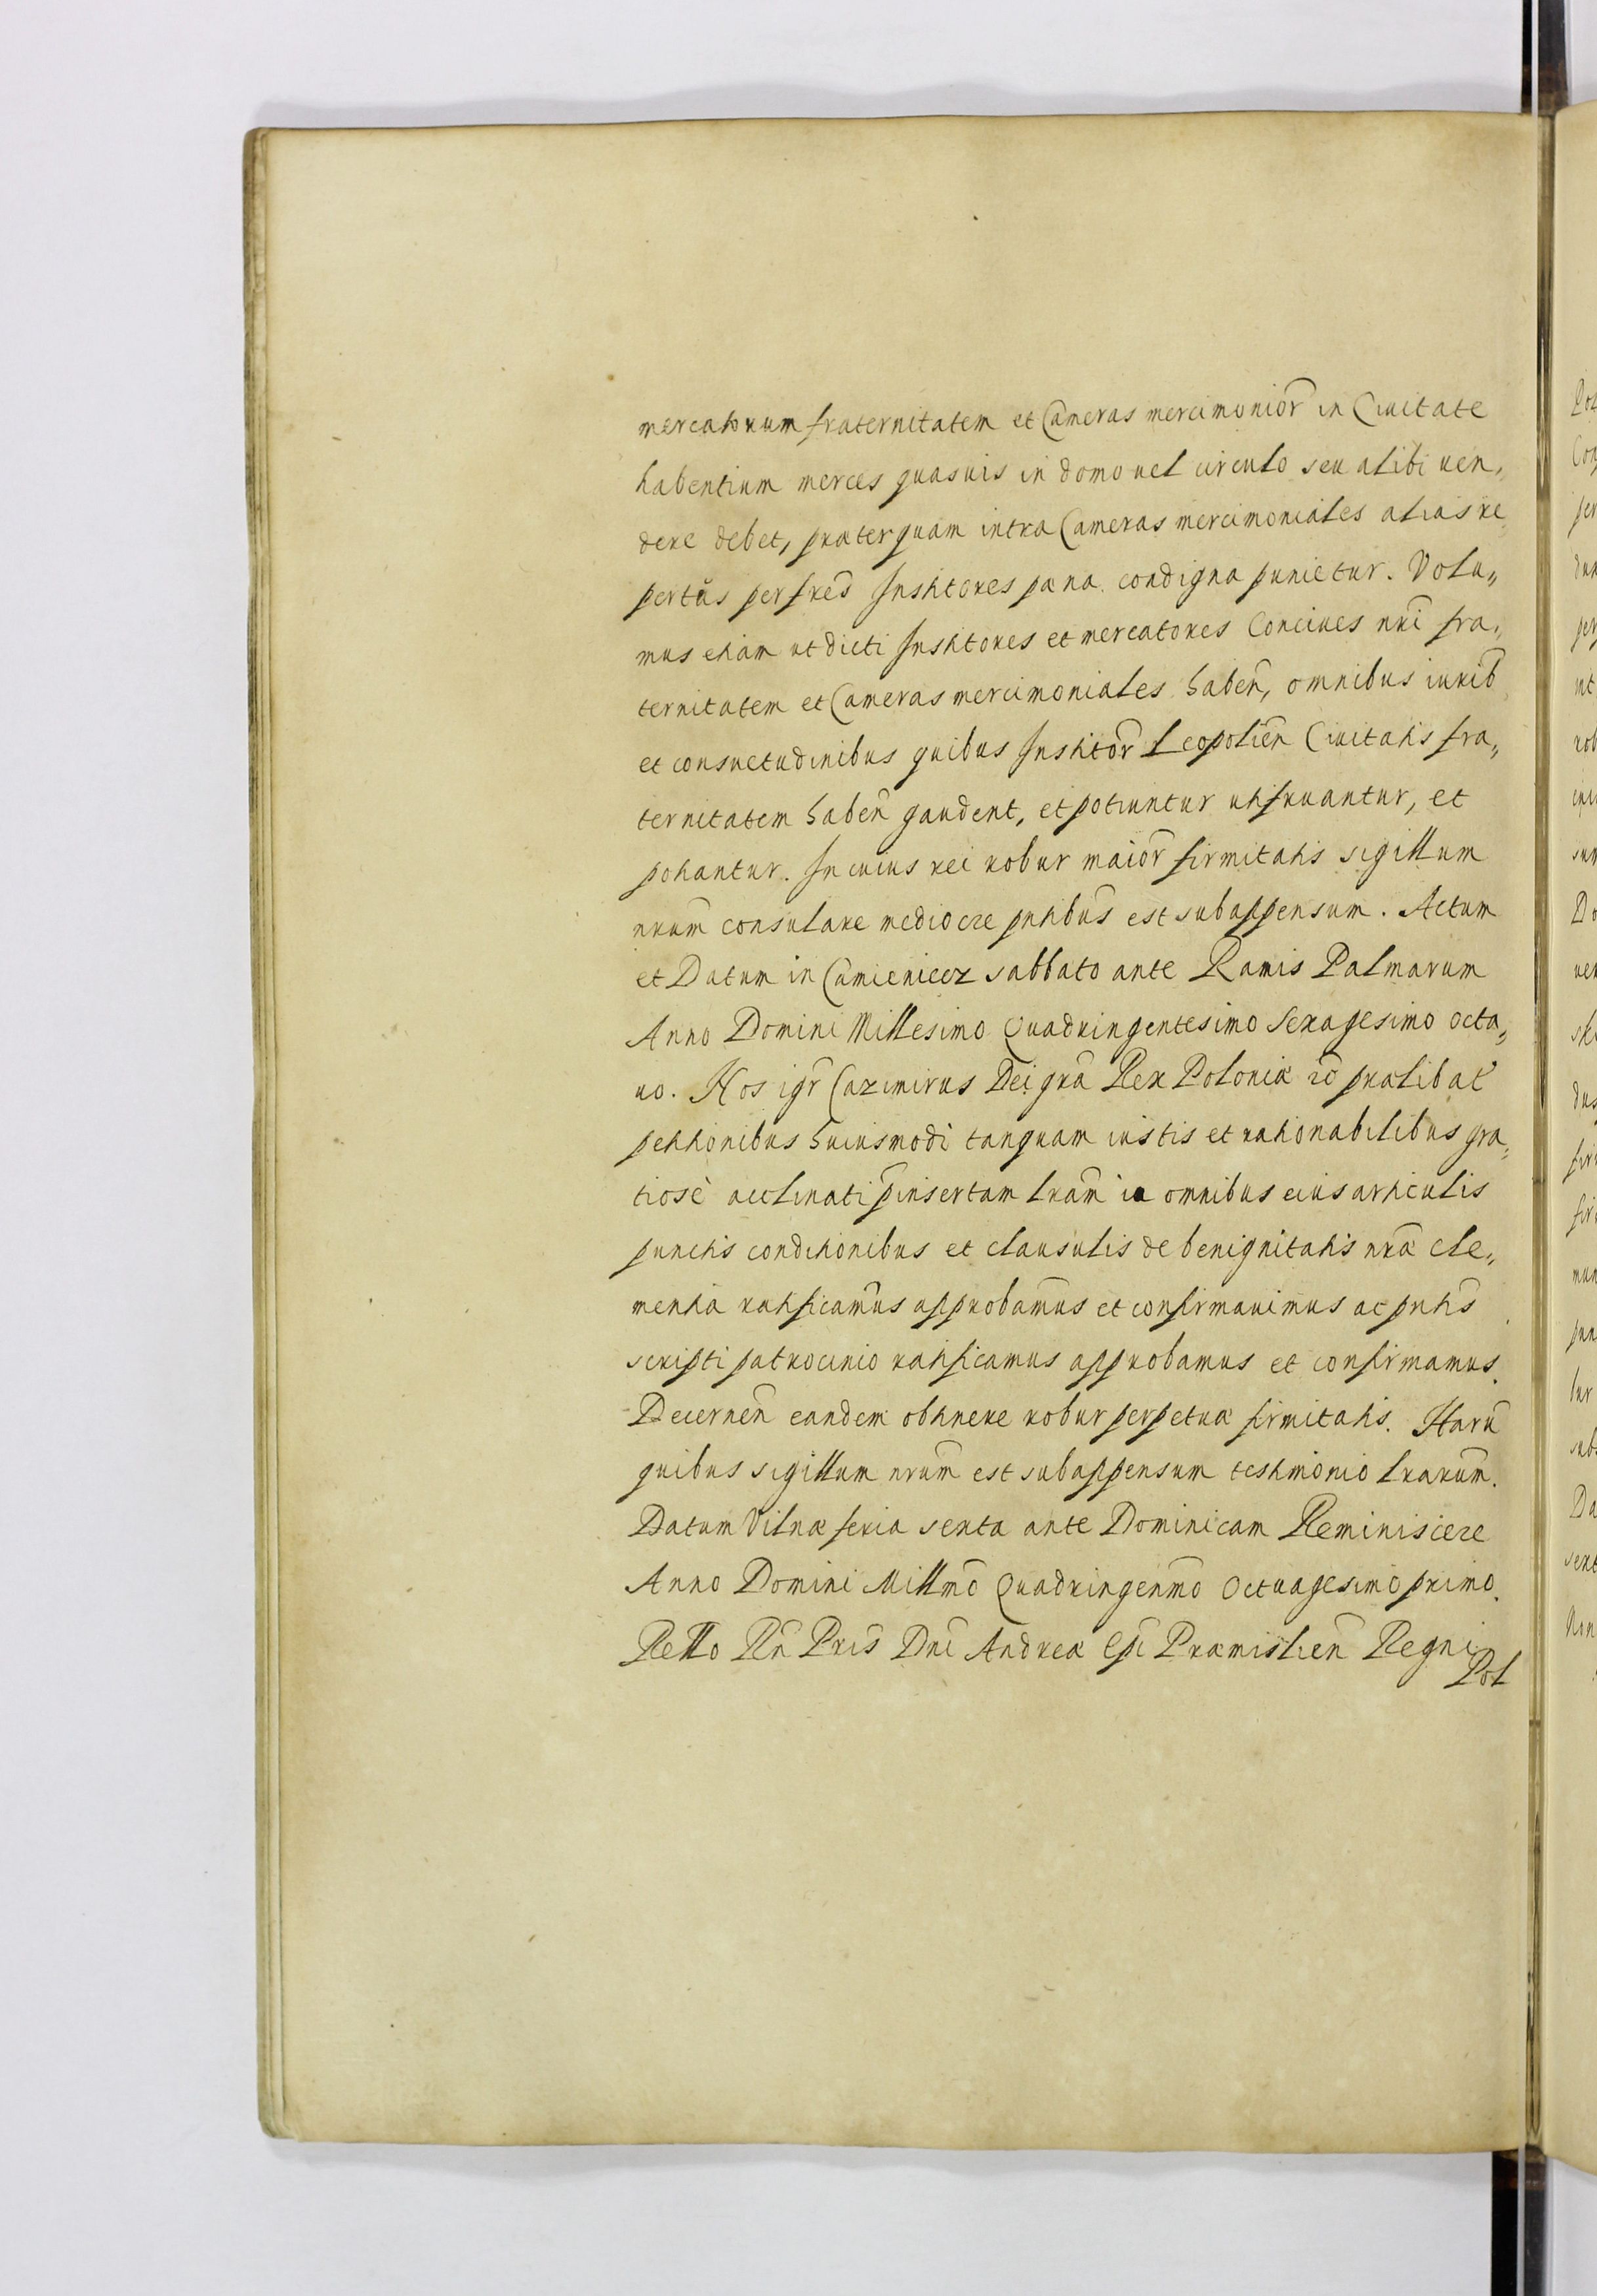 mercatorum fraternitatem et Cameras mercimonior̃ in Ciuitate
habentium merces quasuis in domo uel circulo seu alibi uen„
dere debet, præterquam intra Cameras mercimoniales alias re„
pertũs per fres̃ Institores pæna condigna punietur. Volu„
mus etiam ut dicti Institores et mercatores Conciues nrĩ fra„
ternitatem et Cameras mercimoniales haben̄, omnibus iurib̃
et consuetudinibus quibus Institor̃ Leopolien̄ Ciuitatis fra„
ternitatem haben̄ gaudent, et potiuntur utifruantur, et
potiantur. In cuius rei robur maior̃ firmitatis sigillum
nrũm consulare mediocre pntibũs est subappensum. Actum
et Datum in Camieniecz sabbato ante Ramis Palmarum
Anno Domini Millesimo Quadringentesimo Sexagesimo octa„
uo. Nos igr̃ Cazimirus Dei grã Rex Poloniæ ꝛc̃ prælibat̃
petitionibus huiusmodi tanquam iustis et rationabilibus gra„
tiosè acclinati p̃insertam lrãm in omnibus eius articulis
punctis conditionibus et clausulis de benignitatis nrã cle„
mentia ratificamũs approbamũs et confirmauimus ac pntis̃
scripti patrocinio ratificamus approbamus et confirmamus.
Decernen̄ eandem obtinere robur perpetuæ firmitatis. Harũ
quibus sigillum nrũm est subappensum testimonio lrarũm.
Datum Vilnæ feria sexta ante Dominicam Reminiscere
Anno Domini Millmõ Quadringenmõ Octuagesimo primo.
Rello Rñ Pris̃ Dnĩ Andreæ Epĩ Præmislien̄ Regni
Pol